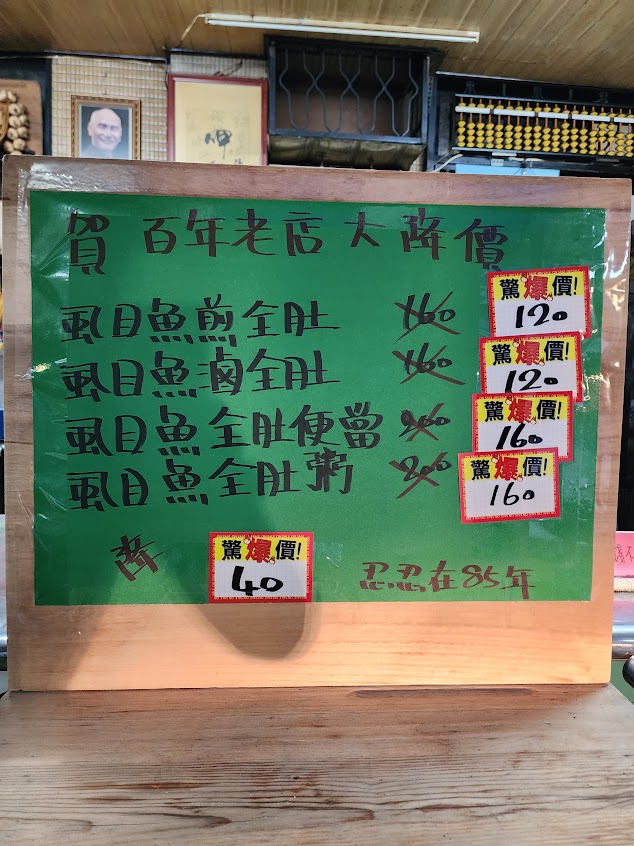 呷
賀 百年老店大降價
虱目魚煎全肚 160 驚爆價! 120
虱目魚滷全肚 160 驚爆價! 120
虱目魚全肚便當 200 驚爆價! 160
虱目魚全肚粥 200 驚爆價! 160
降 驚爆價! 40 忍忍在85年